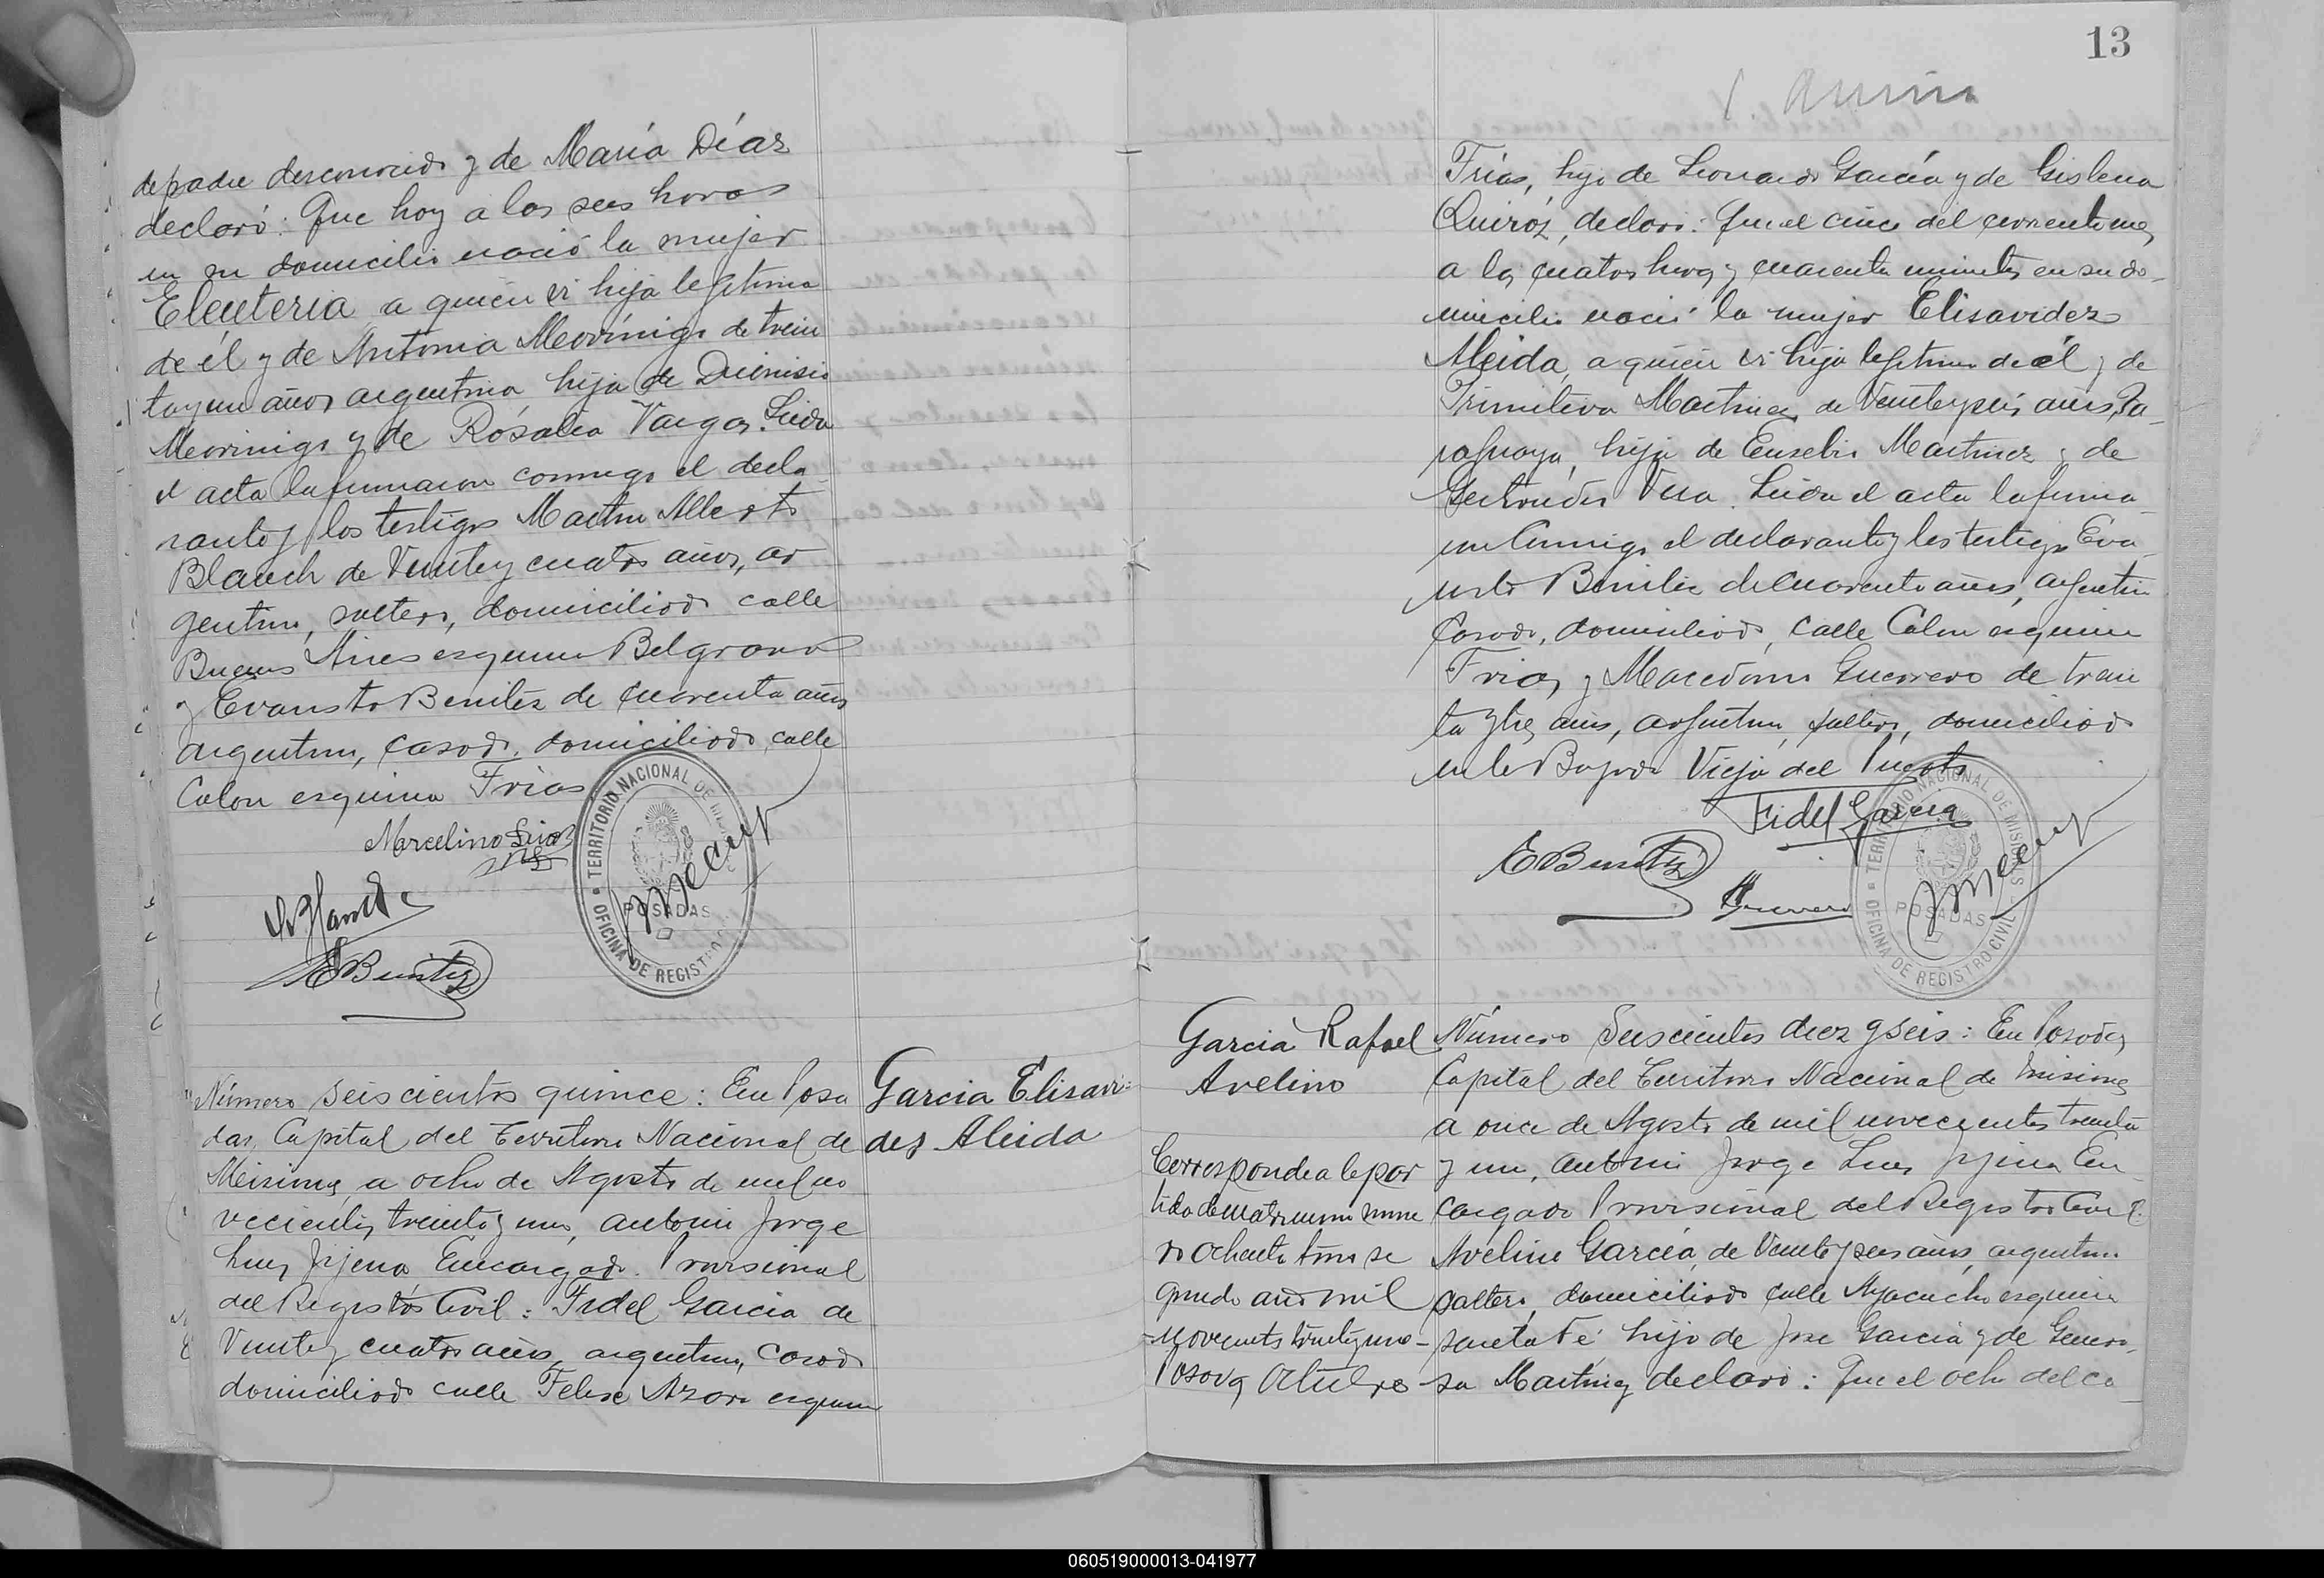 de padre desconocido y de María Díaz
declaró: Que hoy a las seis horas
en su domicilio nació la mujer
Eleuteria a quién es hija legítima
de él y de Antonia Meorinigo de trein
tayun años argentina hija de Dionisio
Meorinigo y de Rosalia Vargas. Leida
el acta la firmaron conmigo el decla
rante y los testigos Martin Alberto
Blanch de Veinte y cuatro años, ar
gentino, soltero, domiciliado calle
Buenos Aires esquina Belgrano
y Evaristo Benitez de cuarenta años
argentino, casado, domiciliado calle
Colon esquina Frias
Marcelino
EBenitez
TERRITORIO NACIONAL DE MISIONES
POSADAS
OFICINA DE REGISTRO CIVIL
Número seiscientos quince: En Posa
das, Capital del Territorio Nacional de
Misiones, a ocho de Agosto de mil no
vecientos treinta y uno, ante mi Jorge
Luis Encargado Provisional
del Registro Civil: Fidel Garcia de
Veinte y cuatro años, argentino, casado
domiciliado calle Felix Azara esquina
Garcia Elisavi-
des Aleida
13
Frías, hijo de Leonardo García y de Gislena
Quiróz, declaró: Que el cinco del corriente mes,
a las cuatro horas y cuarenta minutos en su do-
micilio nació la mujer Elisavidez
Aleida, a quién es hija legítima de él y de
Primitiva Martinez de Veinte y seis años, Pa-
raguaya, hija de Eusebio Martinez y de
Gertrudis Vera. Leida el acta la firma-
ron conmigo el declarante y los testigos Eva-
risto Benitez de cuarenta años, argentino
casado, domiciliado, calle Colon esquina
Frias y Macedonio Guerrero de trein
ta y tres años, argentino, soltero, domiciliado
en la Bajada Vieja del Puerto
Fidel Garcia
EBenitez
Guerrero
TERRITORIO NACIONAL DE MISIONES
POSADAS
OFICINA DE REGISTRO CIVIL
Garcia Rafael
Avelino
Corresponde a la par
tida de matrimonio núme
ro ochenta tomo se
gundo año mil
novecientos treinta y uno-
Posadas Octubre
Número Seiscientos diez y seis: En Posadas,
Capital del Territorio Nacional de Misiones
a once de Agosto de mil novecientos treinta
y uno, ante mi Jorge Luis En-
cargado Provisional del Registro Civil:
Avelino García, de Veinte y seis años, argentino
soltero, domiciliado calle Ayacucho esquina
Santa Fé hijo de José García y de Genero-
sa Martinez declaró: Que el ocho del co-
060519000013-041977